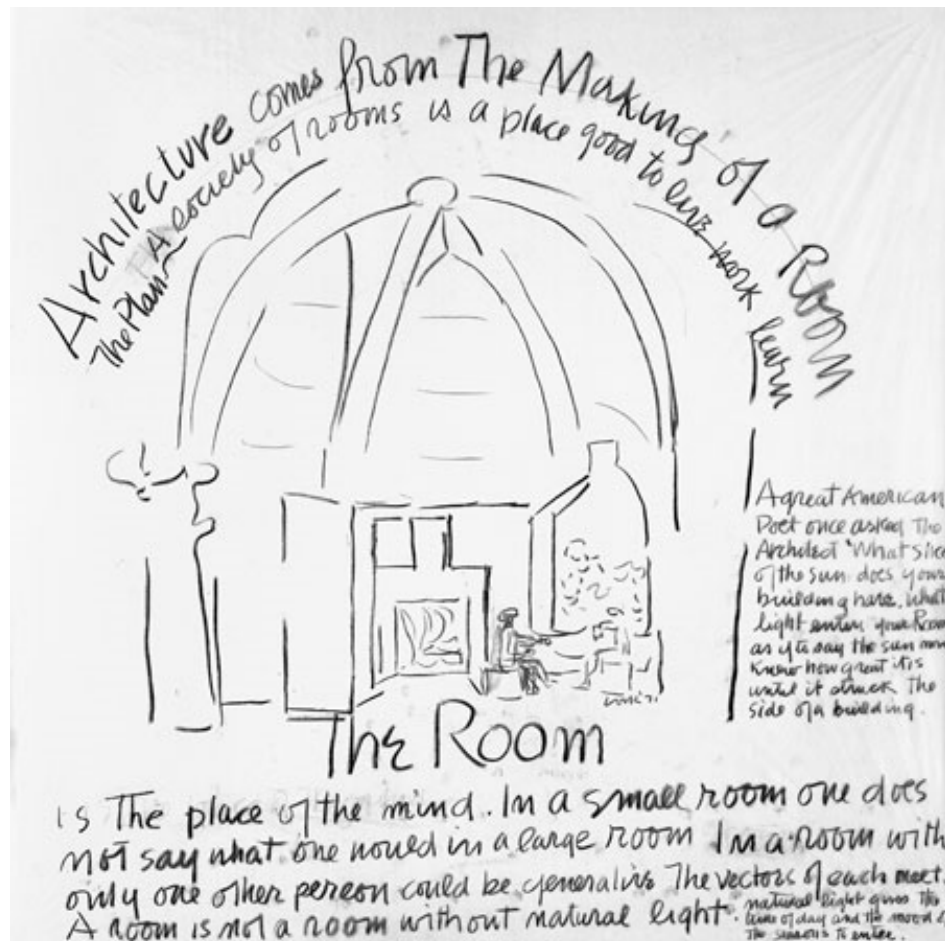 Architecture comes from The Making of a Room
The Plan A society of rooms is a place good to live work learn
A great American
Poet once asked The
Architect 'What slice
of the sun does your
building have, what
light enters your Room
as if to say the sun never
knew how great it is
until it struck The
side of a building.
The Room
is The place of the mind. In a small room one does
not say what one would in a large room In a room with
only one other person could be generative The vectors of each meet.
A room is not a room without natural light.
natural light gives The
time of day and the mood of
The seasons to enter.